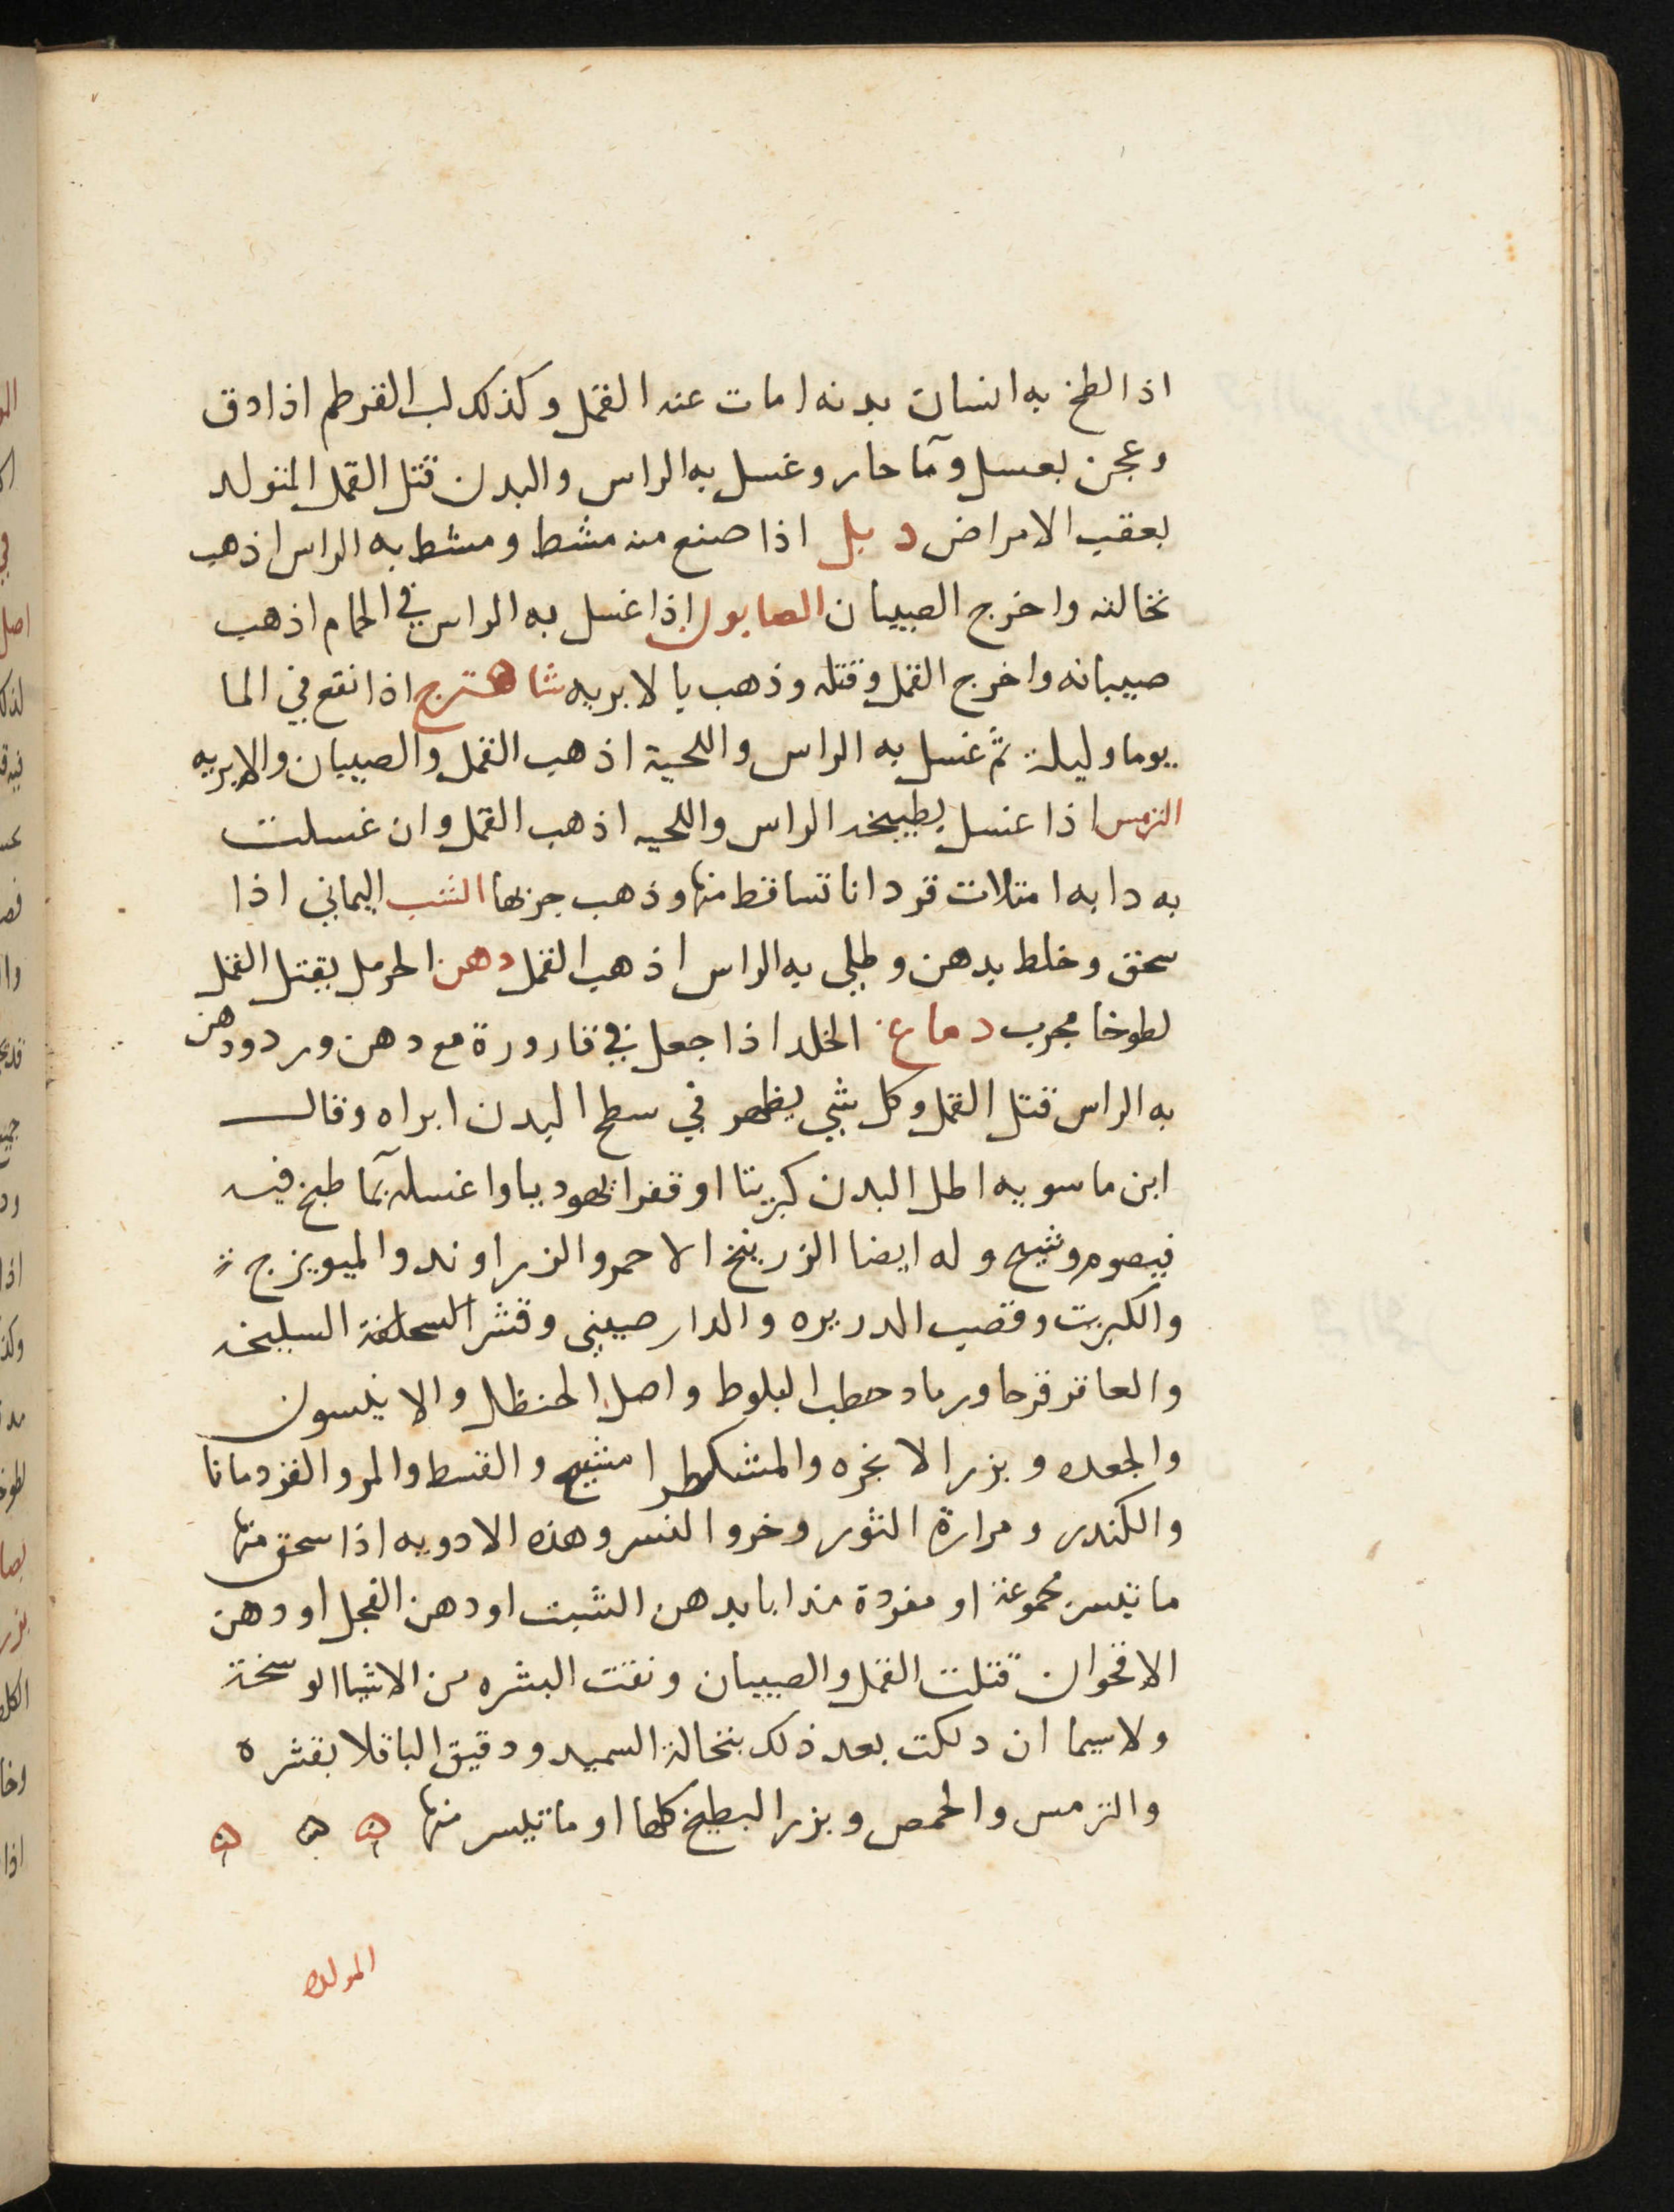 اذا لطخ به انسان بدنه امات عنه القمل وكذلك لب القرطم اذا دق
وعجن بعسل ومآ حار وغسل به الراس والبدن قتل القمل المتولد
بعقب الامراض دبل اذا صنع منه مشط ومشط به الراس اذهب
نخالته واخرج الصيبان الصابون اذا غسل به الراس في الحمام اذهب
صيبانه واخرج القمل وقتله وذهب بالابريه شاهترج اذا نقع في الما
يوما وليلة ثم غسل به الراس واللحية اذهب القمل والصيبان والابريه
الترمس اذا غسل بطبيخه الراس واللحيه اذهب القمل وان غسلت
به دابه امتلات قردانا تساقط منها وذهب جربها الشب اليماني اذا
سحق وخلط بدهن وطلي به الراس اذهب القمل دهن الحرمل يقتل القمل
لطوخا مجرب دماغ الخلد اذا جعل في قارورة مع دهن ورد ودهن
به الراس قتل القمل وكل شي يظهر في سطح البدن ابراه وقال
ابن ماسويه اطل البدن كبريتا او قفرا يهوديا واغسله بمآ طبخ فيه
قيصوم وشيح وله ايضا الزرنيخ الاحمر والزراوند والميويزج
والكبريت وقصب الدريره والدار صيني وقشر السليخه
والعاقرقرحا ورماد حطب البلوط واصل الحنظل والانيسون
والجعده وبزر الانجره والمشكطرامشيح والقسط والمر والقردمانا
والكندر ومرارة الثور وخرو النسر وهذه الادويه اذا سحق منها
ما تيسر مجموعة او مفردة مدابا بدهن الشبت او دهن الفجل او دهن
الاقحوان قتلت القمل والصيبان ونقت البشره من الاشيا الوسخة
ولاسيما ان دلكت بعد ذلك بنخالة السميد ودقيق الباقلا بقشره
والترمس والحمص وبزر البطيخ كلها او ما تيسر منها ه ه ه
المولده